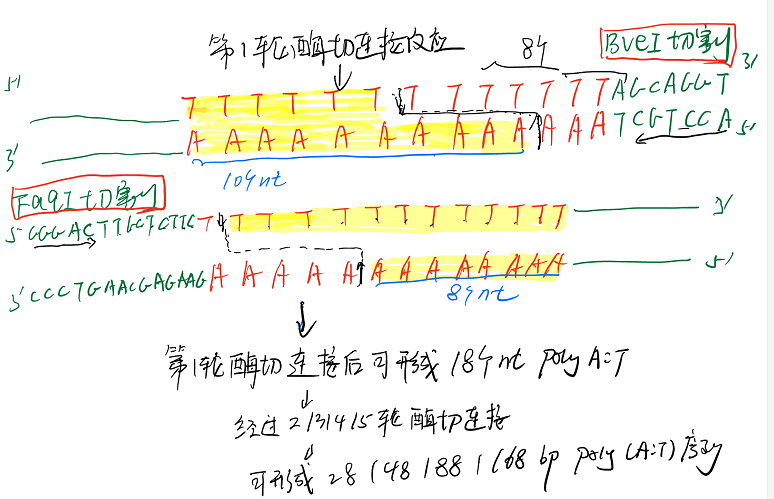 第1轮酶切连接反应
8个
BveI切割
5' T T T T T T T T T T T T T AGCAGGT 3'
3' A A A A A A A A A A A A A TCGTCCA 5'
10个nt
FaqI切割
5' GGGACTTGCTCTTC T T T T T T T T T T T T T 3'
3' CCCTGAACGAGAAG A A A A A A A A A A A A A 5'
8个nt
第1轮酶切连接后可形成18个nt poly A:T
经过2、3、4、5轮酶切连接
可形成28、48、88、168 bp poly (A:T)序列